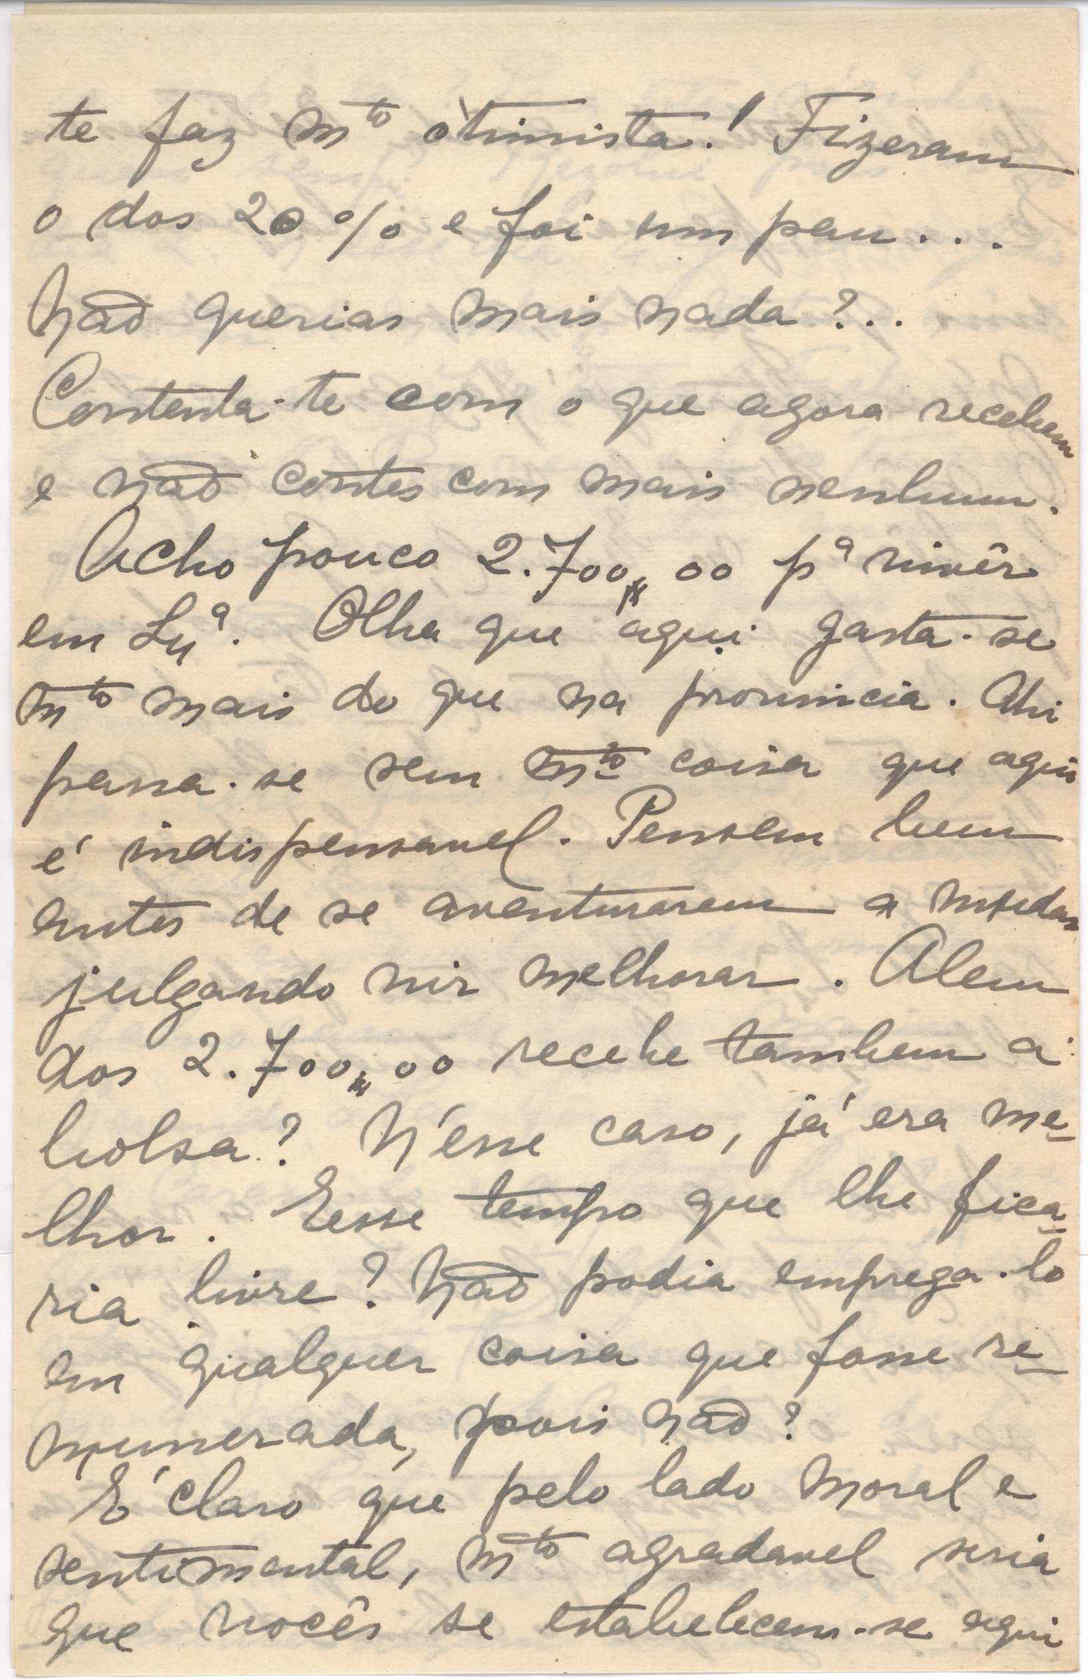 te faz mto ótimista! Fizeram
o dos 20% e foi um pau...
Não querias mais nada?..
Contenta-te com o que agora recebem
e não contes com mais nenhum.
Acho pouco 2.700$00 pª vivêr
em Lxª. Olha que aqui gasta-se
mto mais do que na provincia. Ahi
passa-se sem mta coisa que aqui
é indispensavel. Pensem bem
antes de se aventurarem a mudar
julgando vir melhorar. Alem
dos 2.700$00 recebe tambem a
bolsa? N'esse caso, já era me-
lhor. Eesse tempo que lhe fica-
ria livre? Não podia emprega-lo
em qualquer coisa que fosse re-
munerada, pois não?
É claro que pelo lado moral e
sentimental, mto agradavel seria
que vocês se estabelecem-se aqui